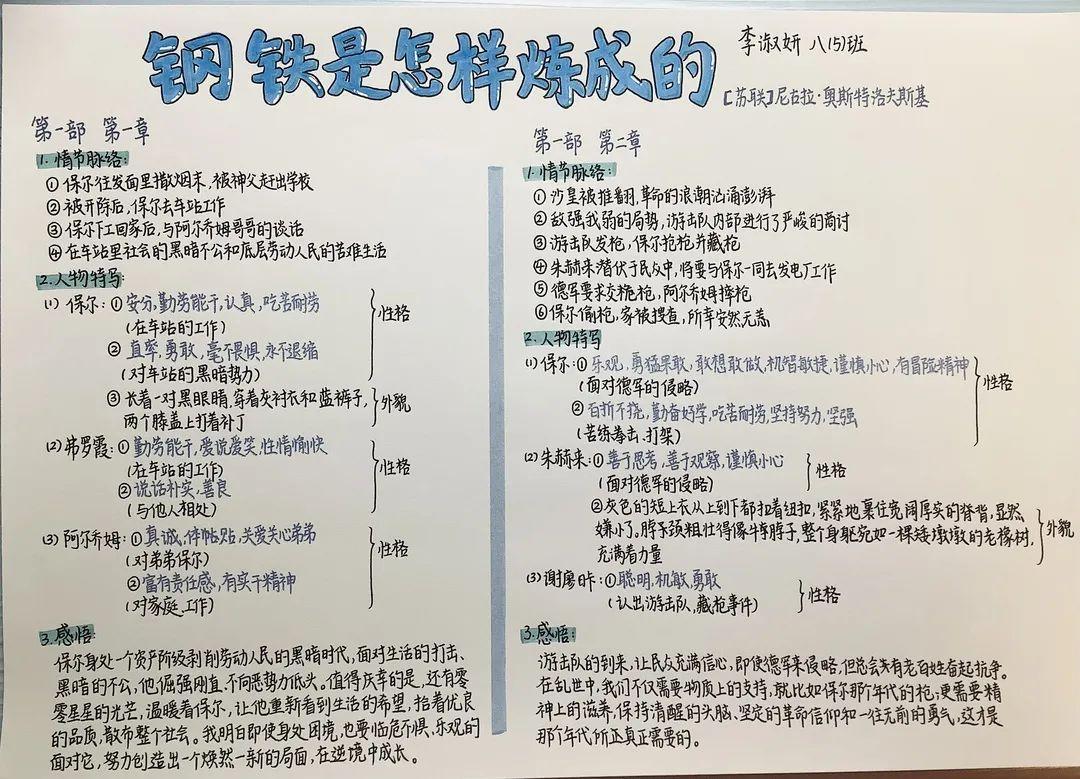 钢铁是怎样炼成的
李淑妍 八(5)班
[苏联]尼古拉·奥斯特洛夫斯基
第一部 第一章
1.情节脉络:
①保尔往发面里撒烟末,被神父赶出学校
②被开除后,保尔去车站工作
③保尔下工回家后,与阿尔乔姆哥哥的谈话
④在车站里社会的黑暗不公和底层劳动人民的苦难生活
2.人物特写:
(1)保尔:①安分,勤劳能干,认真,吃苦耐劳
(在车站的工作)
②直率,勇敢,毫不畏惧,永不退缩
(对车站的黑暗势力)
性格
③长着一对黑眼睛,穿着灰衬衣和蓝裤子,
两个膝盖上打着补丁
外貌
(2)弗罗霞:①勤劳能干,爱说爱笑,性情愉快
(在车站的工作)
②说话朴实,善良
(与他人相处)
性格
(3)阿尔乔姆:①真诚,体帖贴,关爱关心弟弟
(对弟弟保尔)
②富有责任感,有实干精神
(对家庭、工作)
性格
3.感悟:
保尔身处一个资产阶级剥削劳动人民的黑暗时代,面对生活的打击、
黑暗的不公,他倔强刚直,不向恶势力低头。值得庆幸的是,还有零
零星星的光芒,温暖着保尔,让他重新看到生活的希望,拾着优良
的品质,散布整个社会。我明白即使身处困境,也要临危不惧、乐观的
面对它,努力创造出一个焕然一新的局面,在逆境中成长。
第一部 第二章
1.情节脉络:
①沙皇被推翻,革命的浪潮汹涌澎湃
②敌强我弱的局势,游击队内部进行了严峻的商讨
③游击队发枪,保尔抢枪并藏枪
④朱赫来潜伏于民众中,将要与保尔一同去发电厂工作
⑤德军要求交枪,阿尔乔姆摔枪
⑥保尔偷枪,家被搜查,所幸安然无恙
2.人物特写
(1)保尔:①乐观,勇猛果敢,敢想敢做,机智敏捷,谨慎小心,有冒险精神
(面对德军的侵略)
②百折不挠,勤奋好学,吃苦耐劳,坚持努力,坚强
(苦练拳击、打架)
性格
(2)朱赫来:①善于思考,善于观察,谨慎小心
(面对德军的侵略)
性格
②灰色的短上衣从上到下都扣着纽扣,紧紧地裹住宽阔厚实的脊背,显然
嫌小了。脖子颈粗壮得像牛脖子,整个身躯宛如一棵矮墩墩的老橡树,
充满着力量
外貌
(3)谢廖卡:①聪明,机敏,勇敢
(认出游击队,藏枪事件)
性格
3.感悟:
游击队的到来,让民众充满信心,即使德军来侵略,但总会有老百姓奋起抗争。
在乱世中,我们不仅需要物质上的支持,就比如保尔那个年代的枪;更需要精
神上的滋养,保持清醒的头脑、坚定的革命信仰和一往无前的勇气,这才是
那个年代所真正需要的。